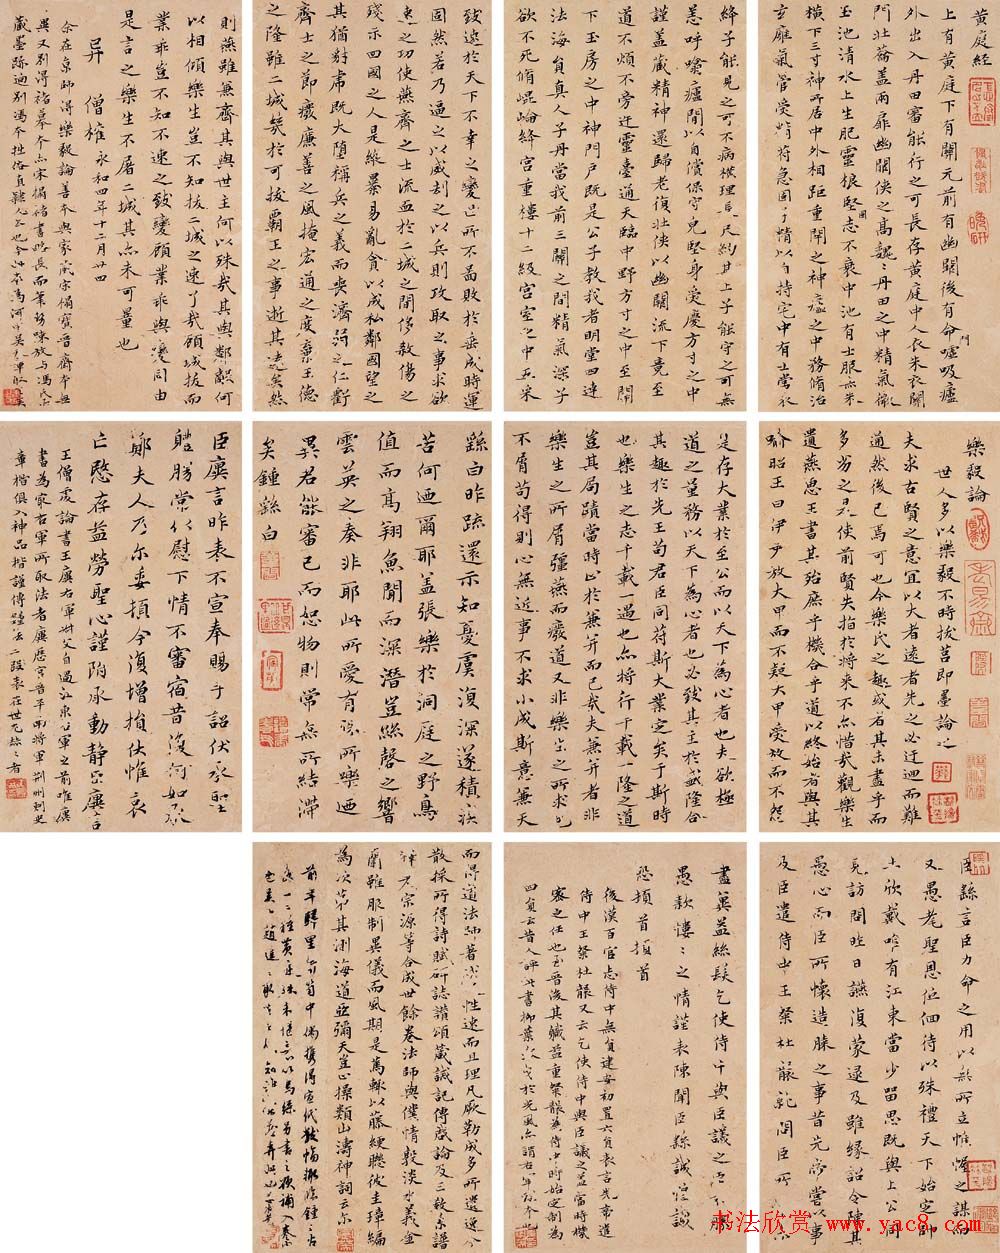 黄庭經
上有黄庭下有關元前有幽關後有命門噓吸廬
外出入丹田審能行之可長存黄庭中人衣朱衣關
門壯籥蓋兩扉幽關俠之高魏〻丹田之中精氣微
玉池清水上生肥靈根堅志不衰中池有士服赤朱
橫下三寸神所居中外相距重閉之神廬之中務脩治
玄癰氣管受精符急固子精以自持宅中有士常衣
絳子能見之可不病橫理長尺約其上子能守之可無
恙呼噏廬間以自償保守完堅身受慶方寸之中
謹蓋藏精神還歸老復壯俠以幽闕流下竟至
道不煩不旁迕靈臺通天臨中野方寸之中至關
下玉房之中神門戶既是公子教我者明堂四達
法海員真人子丹當我前三關之間精氣深子
欲不死脩崐崘絳宮重樓十二級宮室之中五采
致遠於天下不幸之變世所不圖敗於垂成時運
固然若乃逼之以威刼之以兵則攻取之事求欲
速之功使燕齊之士流血於二城之間侈殺傷之
殘示四國之人是縱暴易亂貪以成私鄰國望之
其猶豺虎既大墮稱兵之義而喪濟弱之仁虧
齊士之節癈廉善之風掩宏通之度棄王德
之隆雖二城幾於可拔霸王之事逝其遠矣然
則燕雖兼齊其與世主何以殊哉其與鄰敵何
以相傾樂生豈不知拔二城之速了哉顧城拔而
業乖豈不知不速之致變顧業乖與變同由
是言之樂生不屠二城其亦未可量也
异 僧權 永和四年十二月廿四
余在京師得樂毅論善本與家藏宋搨寶晉齋本無
樂毅論
世人多以樂毅不時拔莒即墨論之
夫求古賢之意宜以大者遠者先之必迂迴而難
通然後已焉可也今樂氏之趣或者其未盡乎而
多劣之是使前賢失指於將來不亦惜哉觀樂生
遺燕惠王書其殆庶乎機合乎道以終始者與其
喻昭王曰伊尹放大甲而不疑大甲受放而不怨
是存大業於至公而以天下為心者也夫欲極
道之量務以天下為心者也必致其主於盛隆合
其趣於先王苟君臣同符斯大業定矣于斯時
也樂生之志千載一遇也亦將行千載一隆之道
豈其局蹟當時止於兼并而已哉夫兼并者非
樂生之所屑彊燕而癈道又非樂生之所求也
不屑苟得則心無近事不求小成斯意兼天
繇白昨疏還示知憂虞復深遂積疾
苦何迺爾耶蓋張樂於洞庭之野鳥
值而高翔魚聞而深潛豈絲磬之響
雲英之奏非耶此所愛有殊所樂迺
異君能審己而恕物則常無所結滯
矣鍾繇白
臣廙言昨表不宣奉賜手詔伏承聖
體勝常以慰下情不審宿昔復何如承
鄭夫人乃尔委頓今復增損伏惟哀
亡愍存益勞聖心謹附承動靜臣廙言
王僧虔論書王廙右軍叔父自過江東右軍之前唯廙
書為最右軍所取法者廙歷官晉平南將軍荊州刺史
章楷俱入神品楷謹傳鍾法二表在世
臣繇言臣力命之用以無所立惟幄之謀而
又愚老聖恩位佃待以殊禮天下始定帥
土欣戴唯有江東當少留思既與上公同
見訪問昨日讌復蒙逮及雖緣詔令陳其
愚心而臣所懷造膝之事昔先帝嘗以事
及臣遣侍中王粲杜襲就問臣所
盡冀益絲髮乞使侍中與臣議之臣不勝
愚款慺〻之情謹表陳聞臣繇誠惶誠
恐頓首頓首
後漢百官志侍中無員建安初置六員表言先帝遣
侍中王粲杜襲又云乞使侍中與臣議之蓋當時機
密之任也
而得道法師著性速而且理凡厥勒成多所遺逸今
散採所得詩賦碑誌讚頌箴誡記傳啟論及三教系譜
釋老宗源等合成世餘卷法師與僕情敦淡水義金
蘭雖服制異儀而風期是篤輒以藤綆聯彼圭璋編
為次第其測海道亞彌天豈止操類山濤神詞云尔
书法欣赏 www.yac8.com